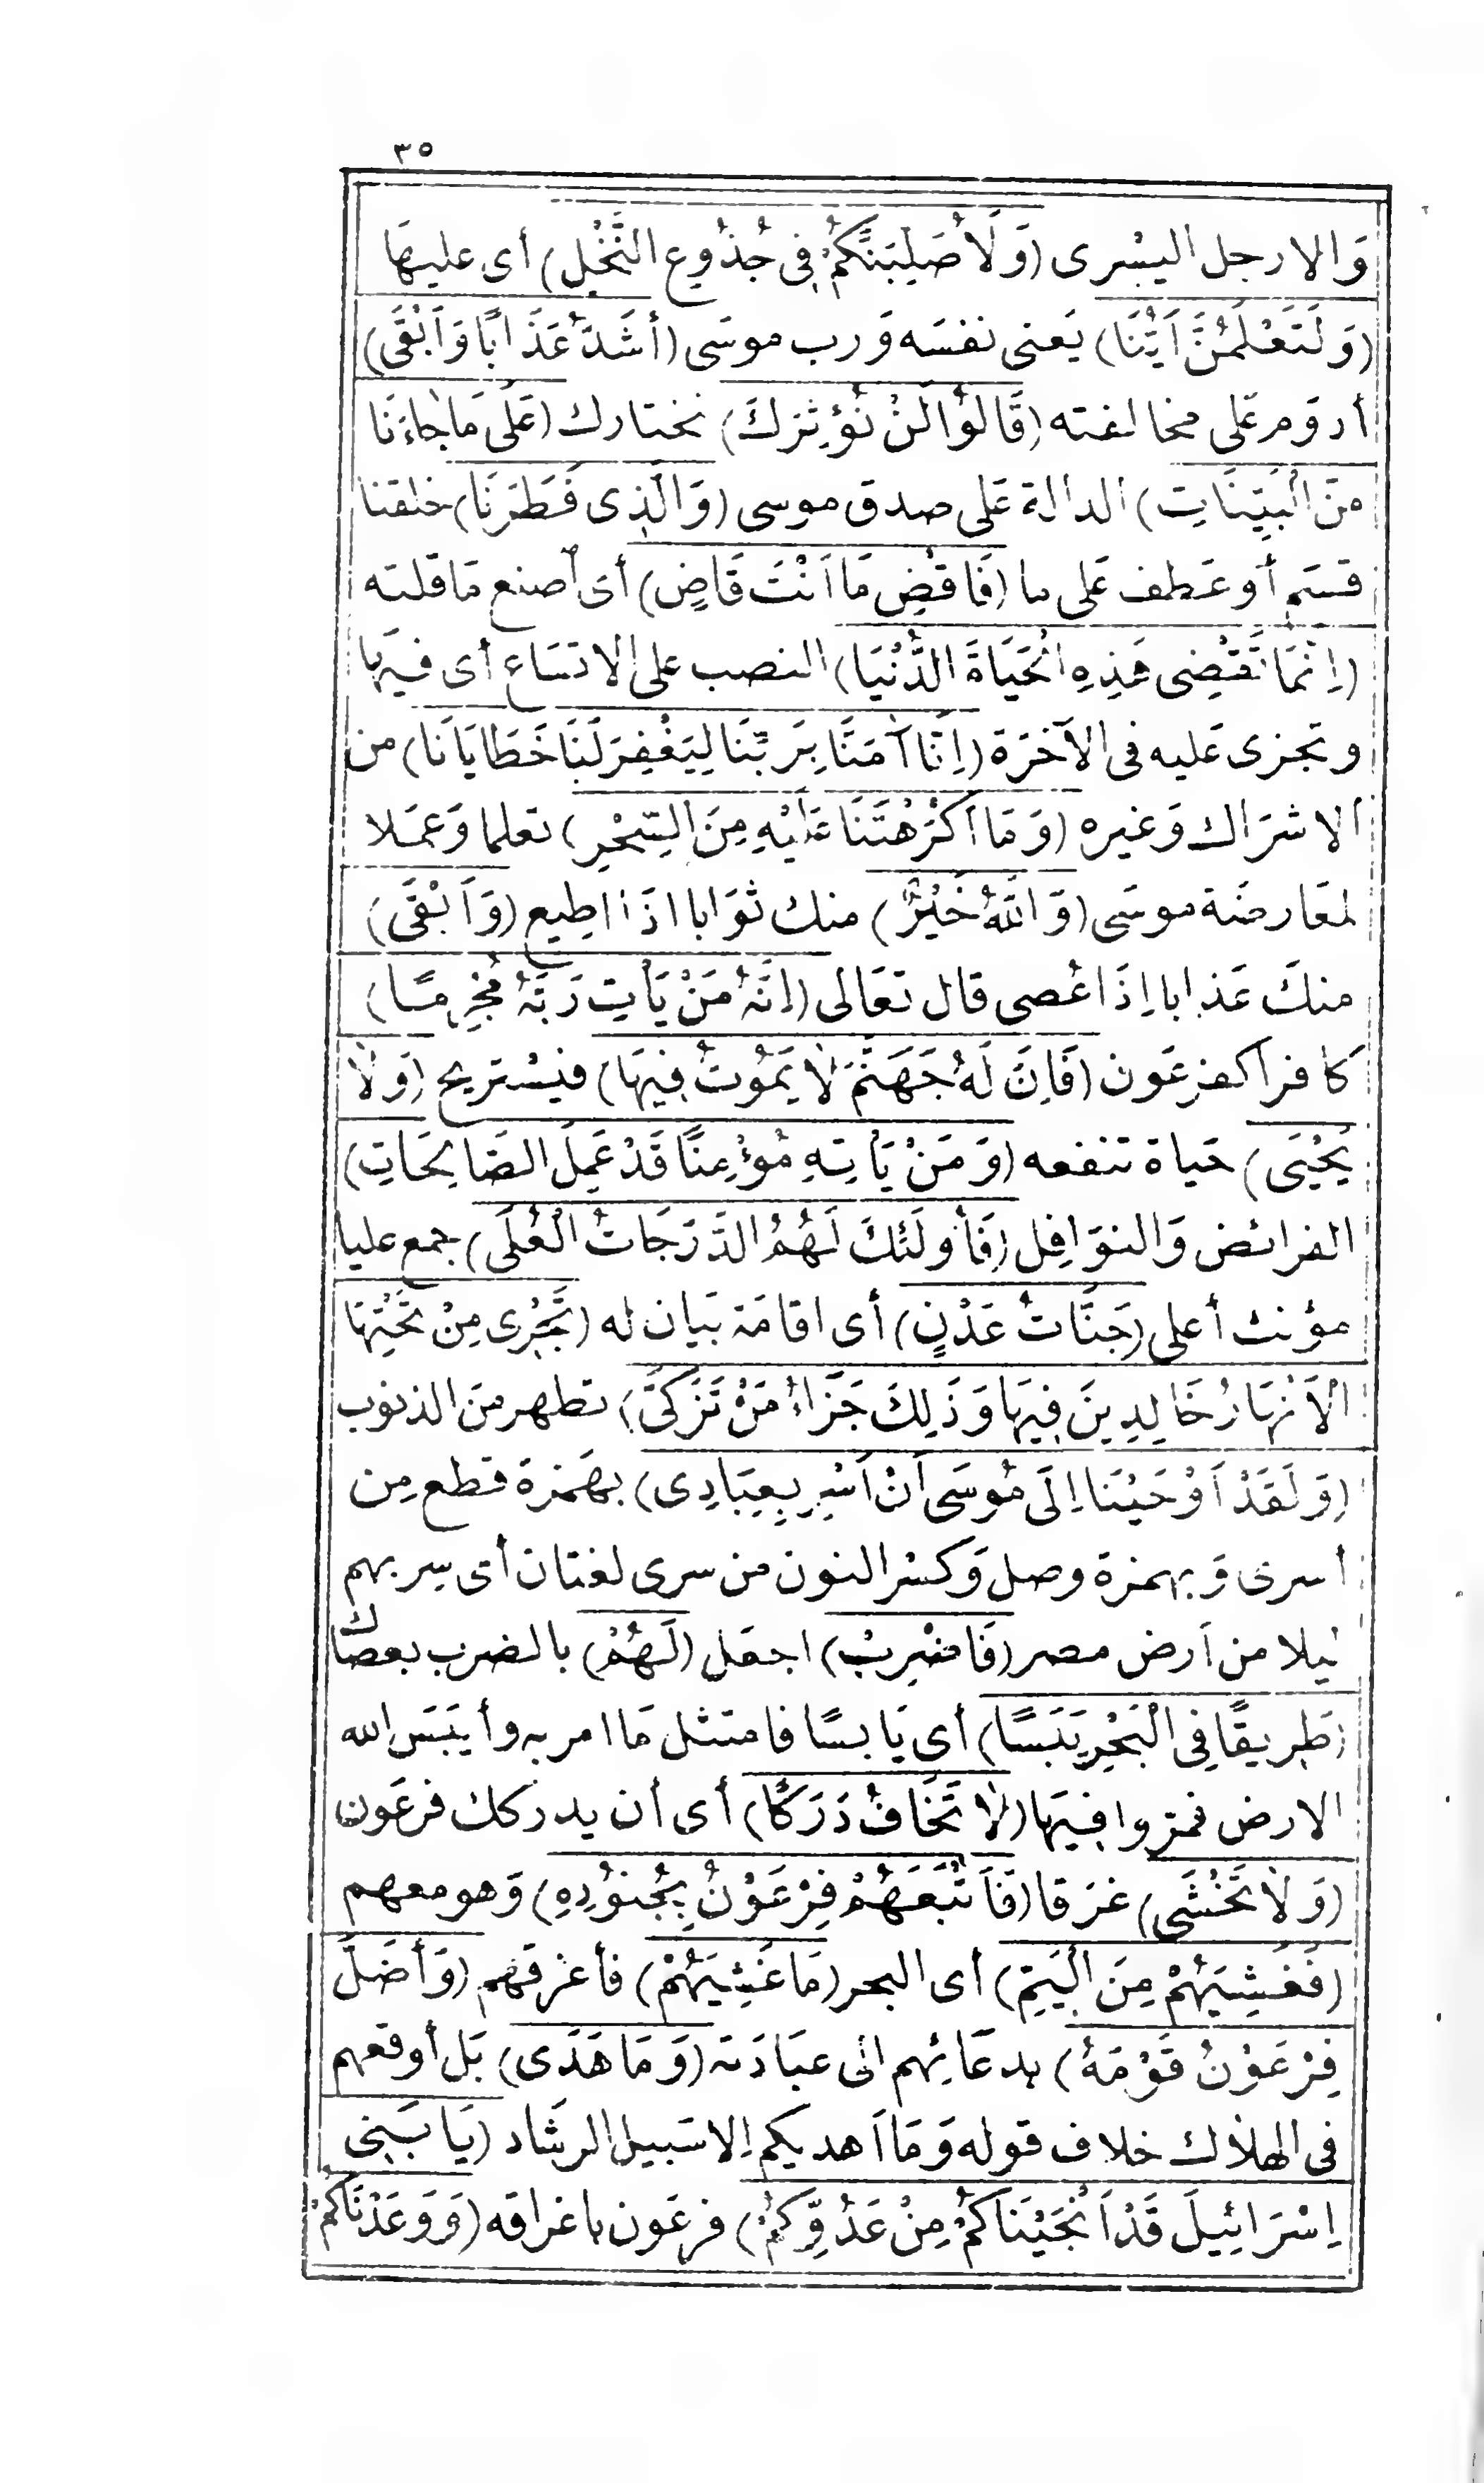 ٣٥
وَالارجل اليسْرى (وَلَاُصَلِّبَنَّكُمْ فِى جُذُوعِ النَّخْلِ) أى عليهَا
(وَلَتَعْلَمُنَّ اَيُّنَا) يَعنى نفسَه وَرب موسَى (أَشَدُّ عَذَابًا وَاَبْقَى)
أدوَم عَلى مخالفته (قَالُوْا لَنْ نُؤْثِرَكَ) نختارك (عَلَى مَا جَاءَنَا
مِنَ الْبَيِّنَاتِ) الدالة عَلى صدق موسى (وَالَّذِى فَطَرَنَا) خلقنا
قسَم أو عَطف عَلى ما (فَاقْضِ مَا اَنْتَ قَاضٍ) أى اصنع مَا قلته
(اِنَّمَا تَقْضِى هَذِهِ الْحَيَاةَ الدُّنْيَا) النصب على الاتسَاع أى فيهَا
وتجزى عَليه فى الآخرَة (اِنَّا آمَنَّا بِرَبِّنَا لِيَغْفِرَ لَنَا خَطَايَانَا) من
الاشرَاك وَغيره (وَمَا اَكْرَهْتَنَا عَلَيْهِ مِنَ السِّحْرِ) تعلما وَعمَلا
لمعَارضَة موسَى (وَاللَّهُ خَيْرٌ) منك ثوَابا اذَا اطِيع (وَاَبْقَى)
منكَ عَذابا اِذَا عُصى قال تعَالى (اِنَّهُ مَنْ يَأْتِ رَبَّهُ مُجْرِمًا)
كافرا كفرعَون (فَاِنَّ لَهُ جَهَنَّمَ لَا يَمُوتُ فِيهَا) فيسْتريح (وَلَا
يَحْيَى) حَياة تنفعه (وَمَنْ يَأْتِهِ مُؤْمِنًا قَدْ عَمِلَ الصَّالِحَاتِ)
الفرائض وَالنوَافِل (فَأُولَئِكَ لَهُمُ الدَّرَجَاتُ الْعُلَى) جمع عليا
مؤنث أعلى (جَنَّاتُ عَدْنٍ) أى اقامَة بيَان له (تَجْرِى مِنْ تَحْتِهَا
الْاَنْهَارُ خَالِدِينَ فِيهَا وَذَلِكَ جَزَاءُ مَنْ تَزَكَّى) تطهر منَ الذنوب
(وَلَقَدْ اَوْحَيْنَا اِلَى مُوسَى اَنْ اَسْرِ بِعِبَادِى) بهَمزة قطع مِن
أسرى وَبهمزة وصل وَكسْر النون من سرى لغتان أى سِر بهم
ليلا من اَرض مصر (فَاضْرِبْ) اجعَل (لَهُمْ) بالضرب بعصَاك
(طَرِيقًا فِى الْبَحْرِ يَبَسًا) أى يَابسًا فامتثل مَا امر به وأيبَسَ الله
الارض فمروا فيهَا (لَا تَخَافُ دَرَكًا) أى أن يدركك فرعَون
(وَلَا تَخْشَى) غرَقا (فَاَتْبَعَهُمْ فِرْعَوْنُ بِجُنُودِهِ) وَهو معهم
(فَغَشِيَهُمْ مِنَ الْيَمِّ) أى البحر (مَا غَشِيَهُمْ) فأغرقهم (وَأَضَلَّ
فِرْعَوْنُ قَوْمَهُ) بدعَائهم الى عبَادَته (وَمَا هَدَى) بَل أوقعهم
فى الهلَاك خلاف قوله وَمَا اَهديكم اِلا سَبيل الرشَاد (يَا بَنِى
اِسْرَائِيلَ قَدْ اَنْجَيْنَاكُمْ مِنْ عَدُوِّكُمْ) فرعَون باغراقه (وَوَعَدْنَاكُمْ